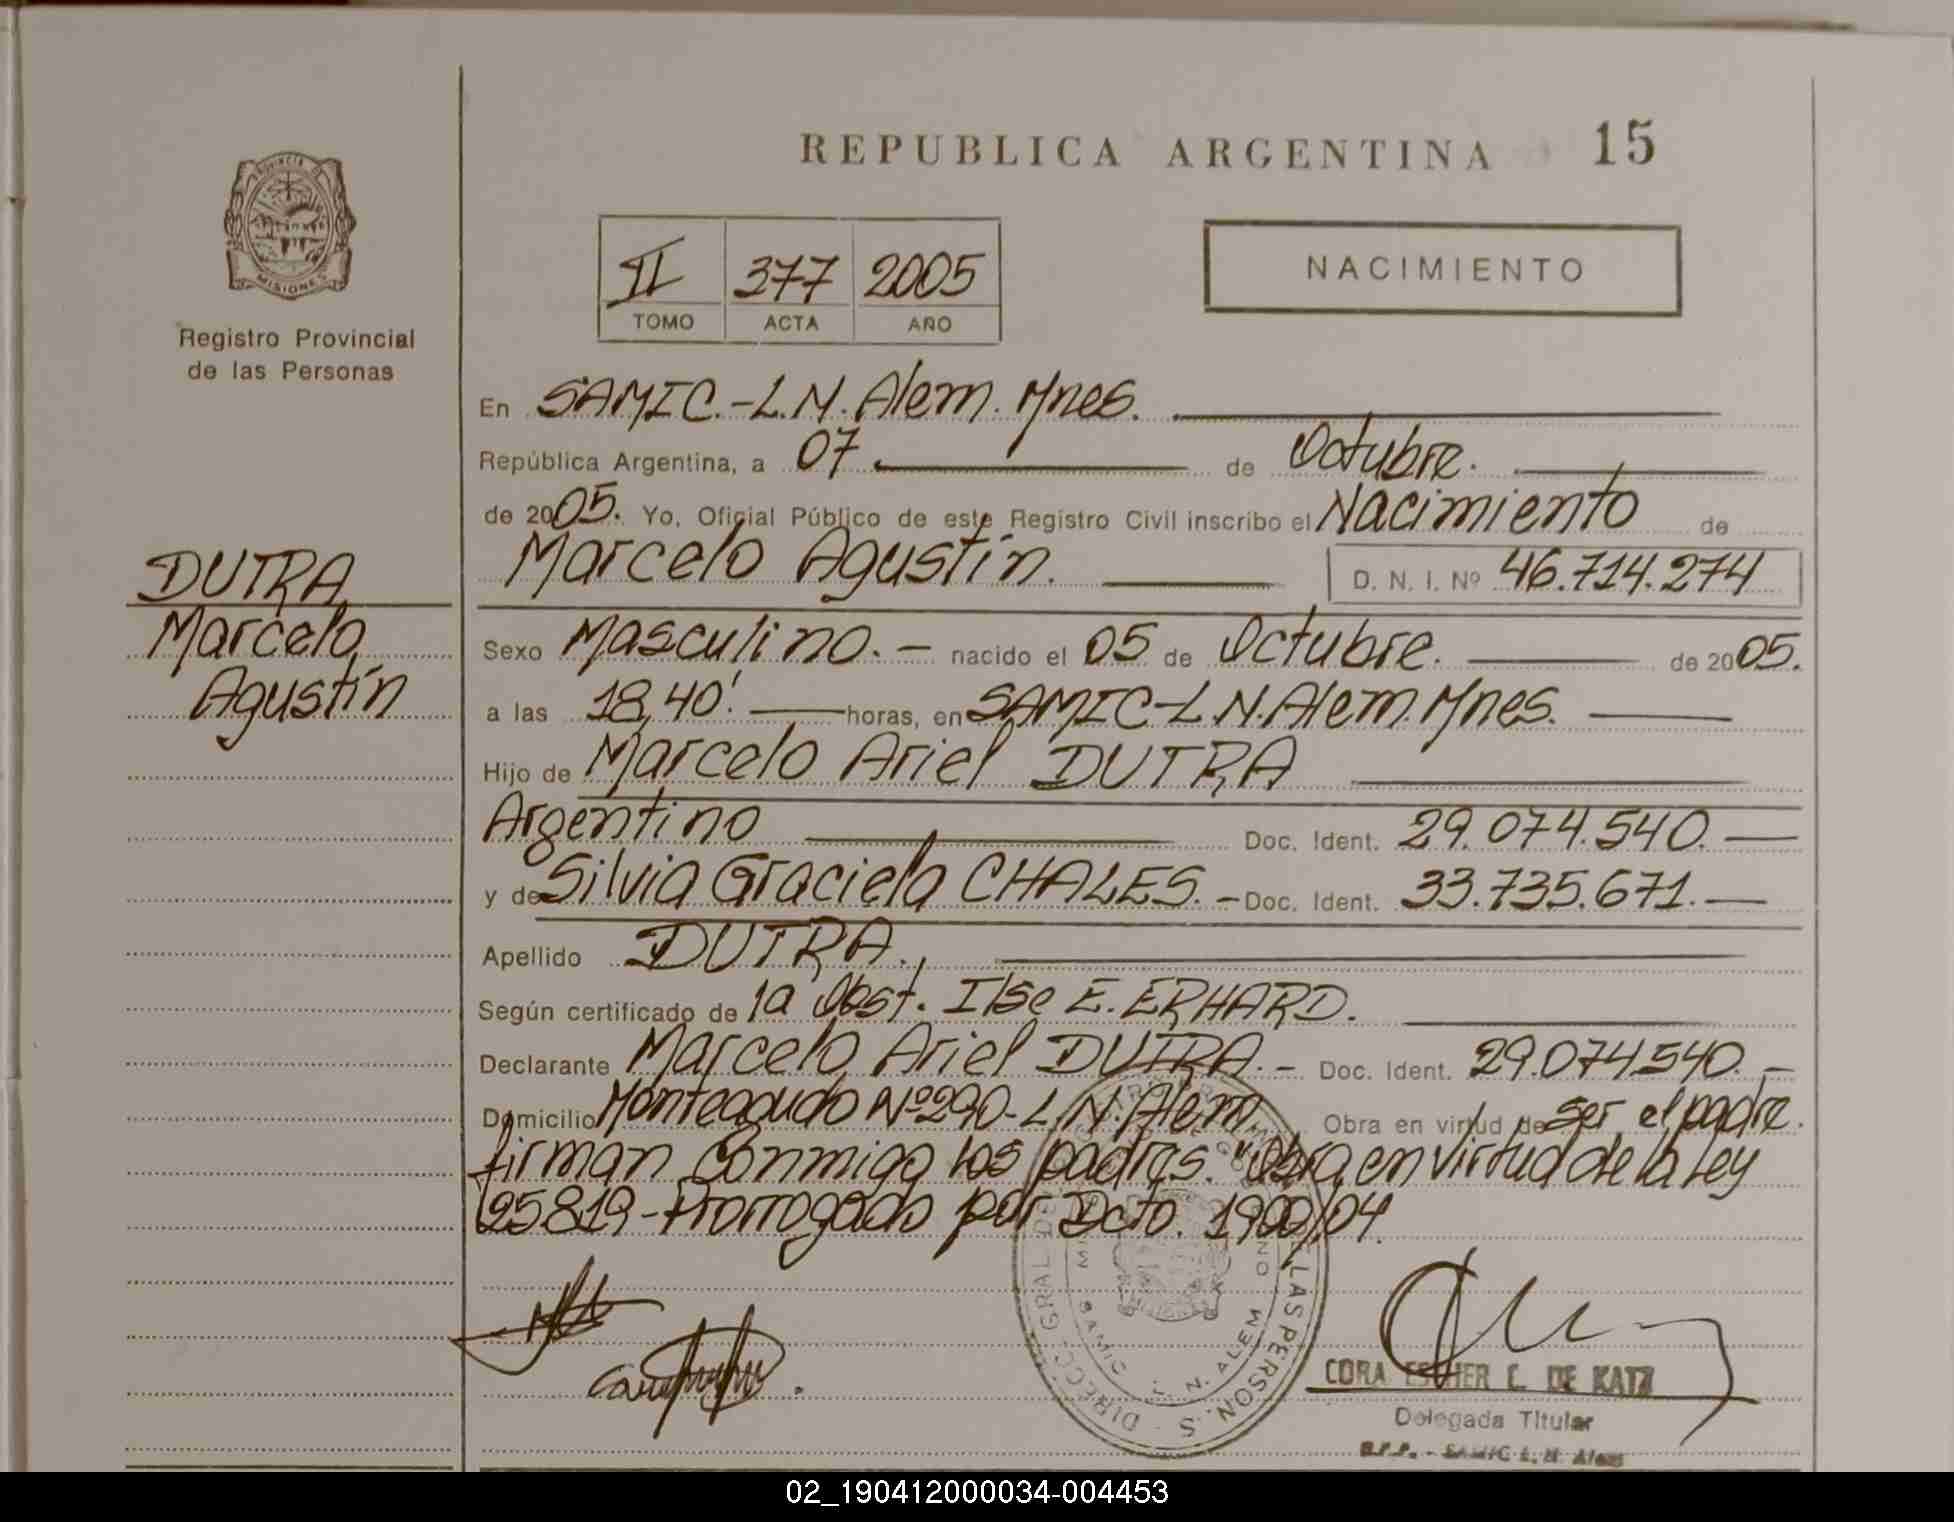 REPUBLICA ARGENTINA 15
PROVINCIA DE
MISIONES
Registro Provincial
de las Personas
II 377 2005
TOMO ACTA AÑO
NACIMIENTO
En SAMIC.-L.N.Alem. Mnes.
República Argentina, a 07 de Octubre.
de 2005. Yo, Oficial Público de este Registro Civil inscribo el Nacimiento de
Marcelo Agustín. D. N. I. Nº 46.714.274
DUTRA
Marcelo
Agustín
Sexo Masculino.- nacido el 05 de Octubre. de 2005.
a las 18,40' horas, en SAMIC-L.N.Alem.Mnes.
Hijo de Marcelo Ariel DUTRA
Argentino Doc. Ident. 29.074.540.
y de Silvia Graciela CHALES.- Doc. Ident. 33.735.671.
Apellido DUTRA.
Según certificado de la Obst. Ilse E. ERHARD.
Declarante Marcelo Ariel DUTRA.- Doc. Ident. 29.074.540.-
Domicilio Monteagudo Nº290-L.N.Alem. Obra en virtud de ser el padre.
firman conmigo los padres. "Obra en virtud de la Ley
25819-Prorrogado por Dcto. 1900/04.
DIRECC. GRAL. DE LAS PERSON.S
SAMIC L. N. ALEM
CORA ESTHER C. DE KATZ
Delegada Titular
R.P.P. - SAMIC L. N. Alem
02_190412000034-004453